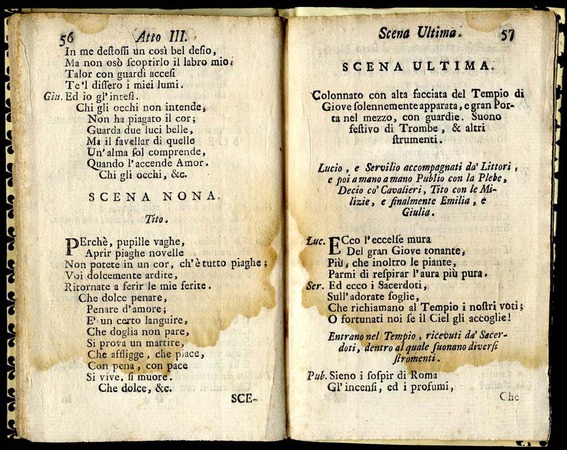 56 Atto III.
In me destossi un così bel desio,
Ma non osò scoprirlo il labro mio;
Talor con guardi accesi
Te'l dissero i miei lumi.
Giu. Ed io gl'intesi.
Chi gli occhi non intende,
Non ha piagato il cor;
Guarda due luci belle,
Ma il favellar di quelle
Un'alma sol comprende,
Quando l'accende Amor.
Chi gli occhi, &c.
SCENA NONA.
Tito.
PErchè, pupille vaghe,
Aprir piaghe novelle
Non potete in un cor, ch'è tutto piaghe;
Voi dolcemente ardite,
Ritornate a ferir le mie ferite.
Che dolce penare,
Penare d'amore;
E' un certo languire,
Che doglia non pare,
Si prova un martire,
Che affligge, che piace,
Con pena, con pace
Si vive, si muore.
Che dolce, &c.
SCE-
Scena Ultima. 57
SCENA ULTIMA.
Colonnato con alta facciata del Tempio di
Giove solennemente apparata, e gran Por-
ta nel mezzo, con guardie. Suono
festivo di Trombe, & altri
strumenti.
Lucio, e Servilio accompagnati da' Littori,
e poi a mano a mano Publio con la Plebe,
Decio co' Cavalieri, Tito con le Mi-
lizie, e finalmente Emilia, e
Giulia.
Luc. ECco l'eccelse mura
Del gran Giove tonante,
Più, che inoltro le piante,
Parmi di respirar l'aura più pura.
Ser. Ed ecco i Sacerdoti,
Sull'adorate soglie,
Che richiamano al Tempio i nostri voti;
O fortunati noi se il Ciel gli accoglie!
Entrano nel Tempio, ricevuti da' Sacer-
doti, dentro al quale suonano diversi
stromenti.
Pub. Sieno i sospir di Roma
Gl'incensi, ed i profumi,
Che